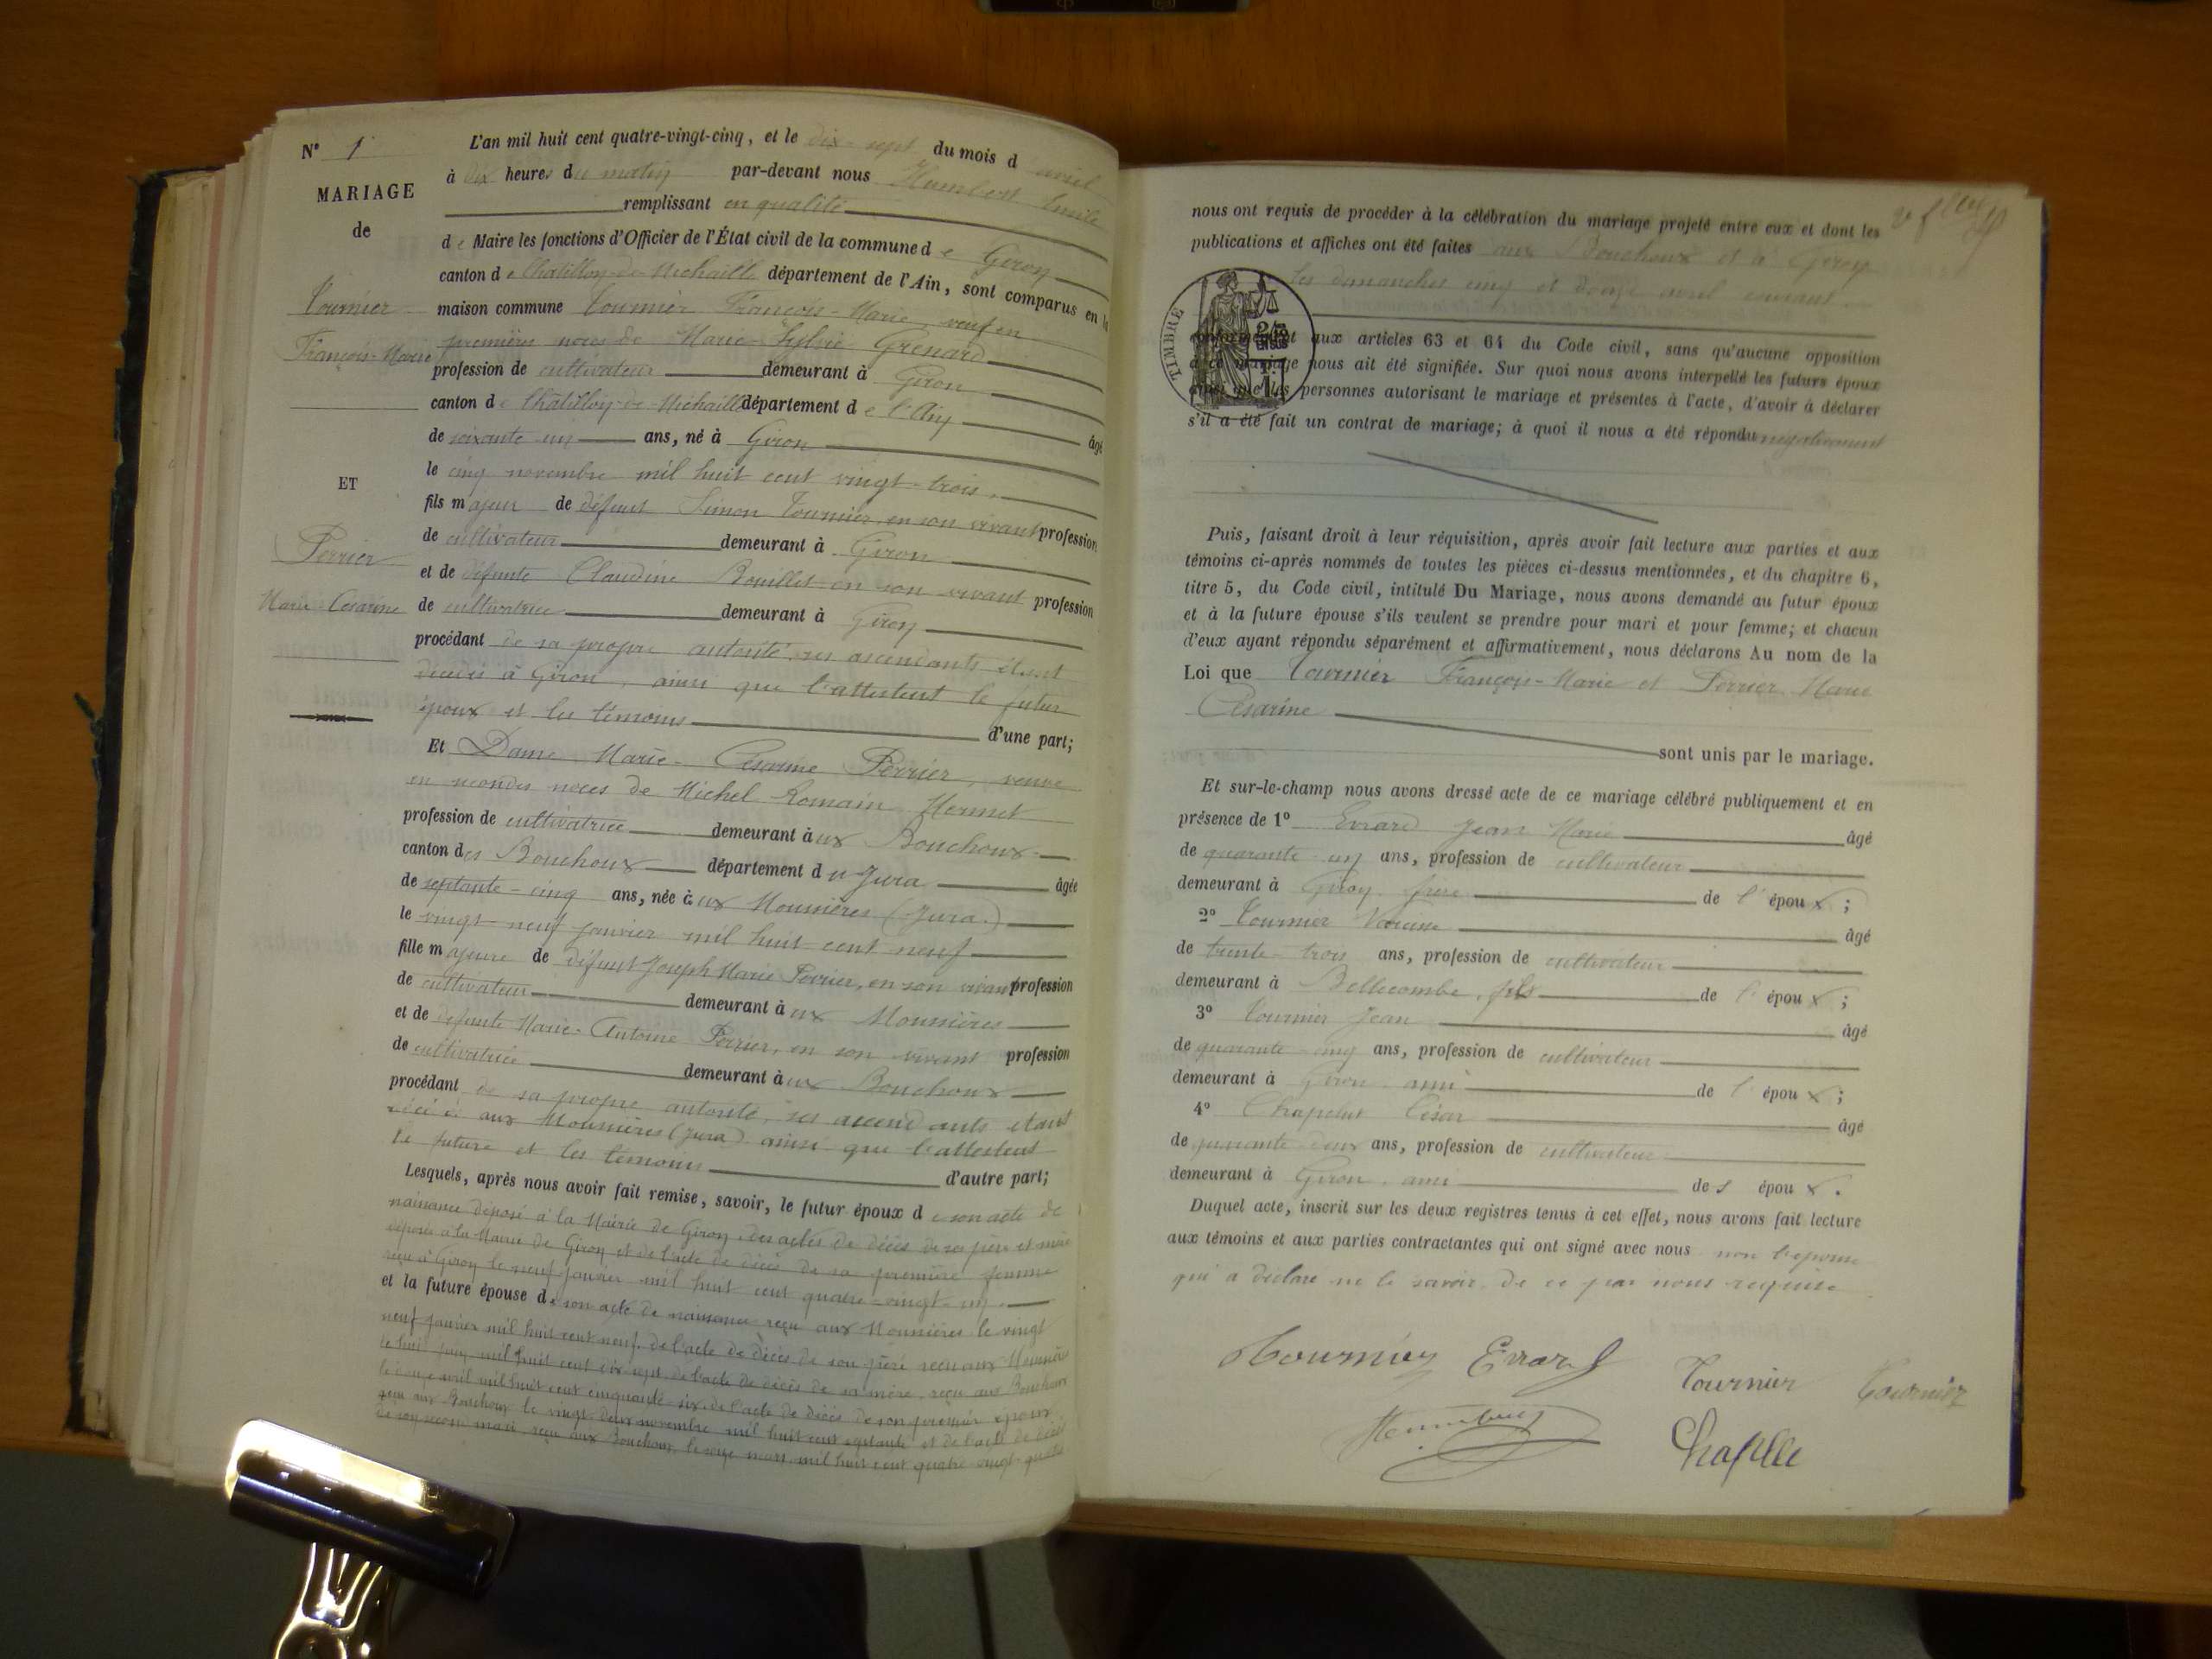 N° 1
MARIAGE
de
Tournier
François-Marie
ET
Perrier
Marie Césarine
L'an mil huit cent quatre-vingt-cinq, et le dix-sept du mois d avril
à dix heures du matin par-devant nous Humbert Emile
remplissant en qualité
de Maire les fonctions d'Officier de l'État civil de la commune de Giron
canton de Chatillon-de-Michaille département de l'Ain, sont comparus en la
maison commune Tournier François-Marie, veuf en
premières noces de Marie-Sylvie Grenard
profession de cultivateur demeurant à Giron
canton de Chatillon-de-Michaille département de l'Ain
âgé
de soixante un ans, né à Giron
le cinq novembre mil huit cent vingt-trois,
fils majeur de défunt Simon Tournier, en son vivant profession
de cultivateur demeurant à Giron
et de défunte Claudine Bouillet en son vivant profession
de cultivatrice demeurant à Giron
procédant de sa propre autorité, ses ascendants étant
décédés à Giron, ainsi que l'attestent le futur
époux et les témoins d'une part;
Et Dame Marie-Césarine Perrier, veuve
en secondes noces de Michel Romain
profession de cultivatrice demeurant aux Bouchoux
canton des Bouchoux département du Jura âgée
de septante-cinq ans, née à aux Moussières (Jura)
le vingt-neuf janvier mil huit cent neuf
fille majeure de défunt Joseph Marie Perrier, en son vivant profession
de cultivateur demeurant à aux Moussières
et de défunte Marie-Antoine Perrier, en son vivant profession
de cultivatrice demeurant à aux Bouchoux
procédant de sa propre autorité, ses ascendants étant
décédés aux Moussières (Jura) ainsi que l'attestent
la future et les témoins d'autre part;
Lesquels, après nous avoir fait remise, savoir, le futur époux de son acte de
naissance déposé à la Mairie de Giron, des actes de décès de ses père et mère
déposés à la Mairie de Giron et de l'acte de décès de sa première femme
reçu à Giron le neuf janvier mil huit cent quatre-vingt-un
et la future épouse de son acte de naissance reçu aux Moussières le vingt
neuf janvier mil huit cent neuf, de l'acte de décès de son père reçu aux Moussières
le huit juin mil huit cent dix-sept, de l'acte de décès de sa mère reçu aux Bouchoux
le avril mil huit cent cinquante-six, de l'acte de décès de son premier époux
reçu aux Bouchoux le vingt-deux novembre mil huit cent septante et de l'acte de décès
de son second mari reçu aux Bouchoux le mars mil huit cent quatre-vingt-quatre
nous ont requis de procéder à la célébration du mariage projeté entre eux et dont les
publications et affiches ont été faites aux Bouchoux et à Giron
les dimanches cinq et douze avril courant
TIMBRE
conformément aux articles 63 et 64 du Code civil, sans qu'aucune opposition
à ce mariage nous ait été signifiée. Sur quoi nous avons interpellé les futurs époux
ainsi que les personnes autorisant le mariage et présentes à l'acte, d'avoir à déclarer
s'il a été fait un contrat de mariage; à quoi il nous a été répondu négativement
Puis, faisant droit à leur réquisition, après avoir fait lecture aux parties et aux
témoins ci-après nommés de toutes les pièces ci-dessus mentionnées, et du chapitre 6,
titre 5, du Code civil, intitulé Du Mariage, nous avons demandé au futur époux
et à la future épouse s'ils veulent se prendre pour mari et pour femme; et chacun
d'eux ayant répondu séparément et affirmativement, nous déclarons Au nom de la
Loi que Tournier François-Marie et Perrier Marie
Césarine
sont unis par le mariage.
Et sur-le-champ nous avons dressé acte de ce mariage célébré publiquement et en
présence de 1° Evrard Jean Marie âgé
de quarante-un ans, profession de cultivateur
demeurant à Giron, frère de l'époux;
2° Tournier âgé
de trente-trois ans, profession de cultivateur
demeurant à Bellecombe, fils de l'époux;
3° Tournier Jean âgé
de quarante-cinq ans, profession de cultivateur
demeurant à Giron, ami de l'époux;
4° Chapelut César âgé
de quarante-deux ans, profession de cultivateur
demeurant à Giron, ami des époux.
Duquel acte, inscrit sur les deux registres tenus à cet effet, nous avons fait lecture
aux témoins et aux parties contractantes qui ont signé avec nous non l'épouse
qui a déclaré ne le savoir de ce par nous requise
Tournier Evrard Tournier Tournier
Humbert